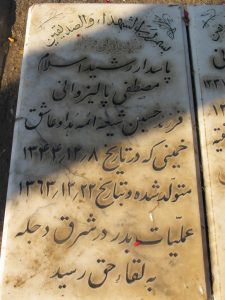 بسم رب الشهداء والصدیقین
پاسدار رشید اسلام
مصطفی پالیزوانی
فرزند حسین شیفته ائمه هداو عاشق
خمینی که در تاریخ ۱۳۴۴/۳/۸
متولد شده و بتاریخ ۱۳۶۳/۱۲/۲۲
عملیات بدر در شرق دجله
به لقاء حق رسید